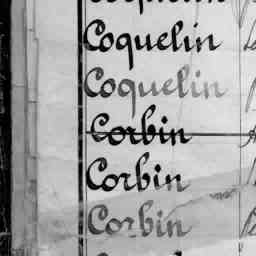 Coquelin
Coquelin
Corbin
Corbin
Corbin